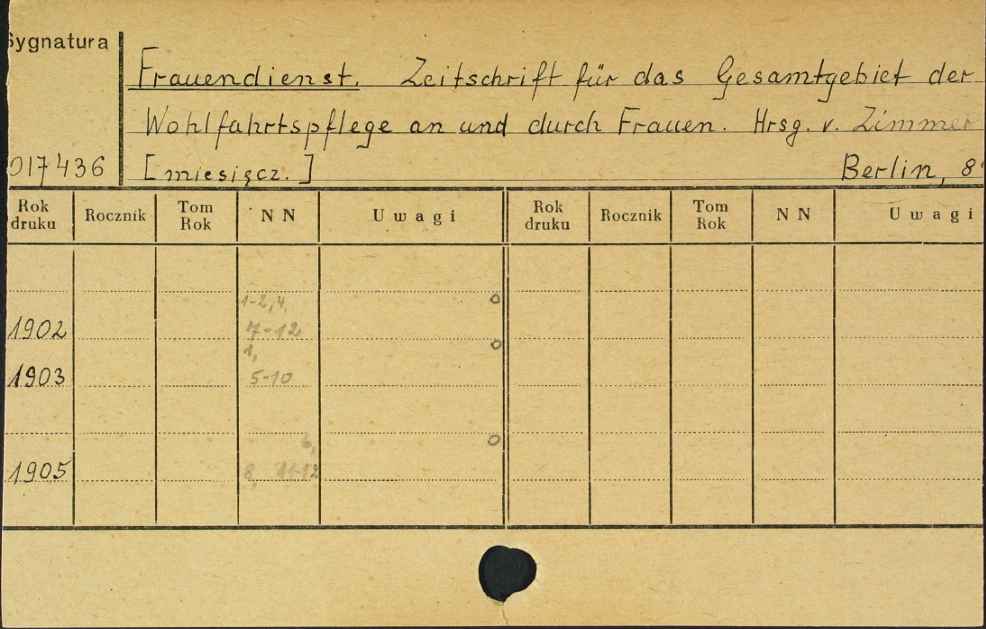 Sygnatura
Frauendienst. Zeitschrift für das Gesamtgebiet der
Wohlfahrtspflege an und durch Frauen. Hrsg. v. Zimmer
017436 [miesięcz.] Berlin, 8°
Rok druku Rocznik Tom Rok N N Uwagi Rok druku Rocznik Tom Rok N N Uwagi
1-2, 4,
1902 7-12
1,
1903 5-10
6,
1905 8, 11-12